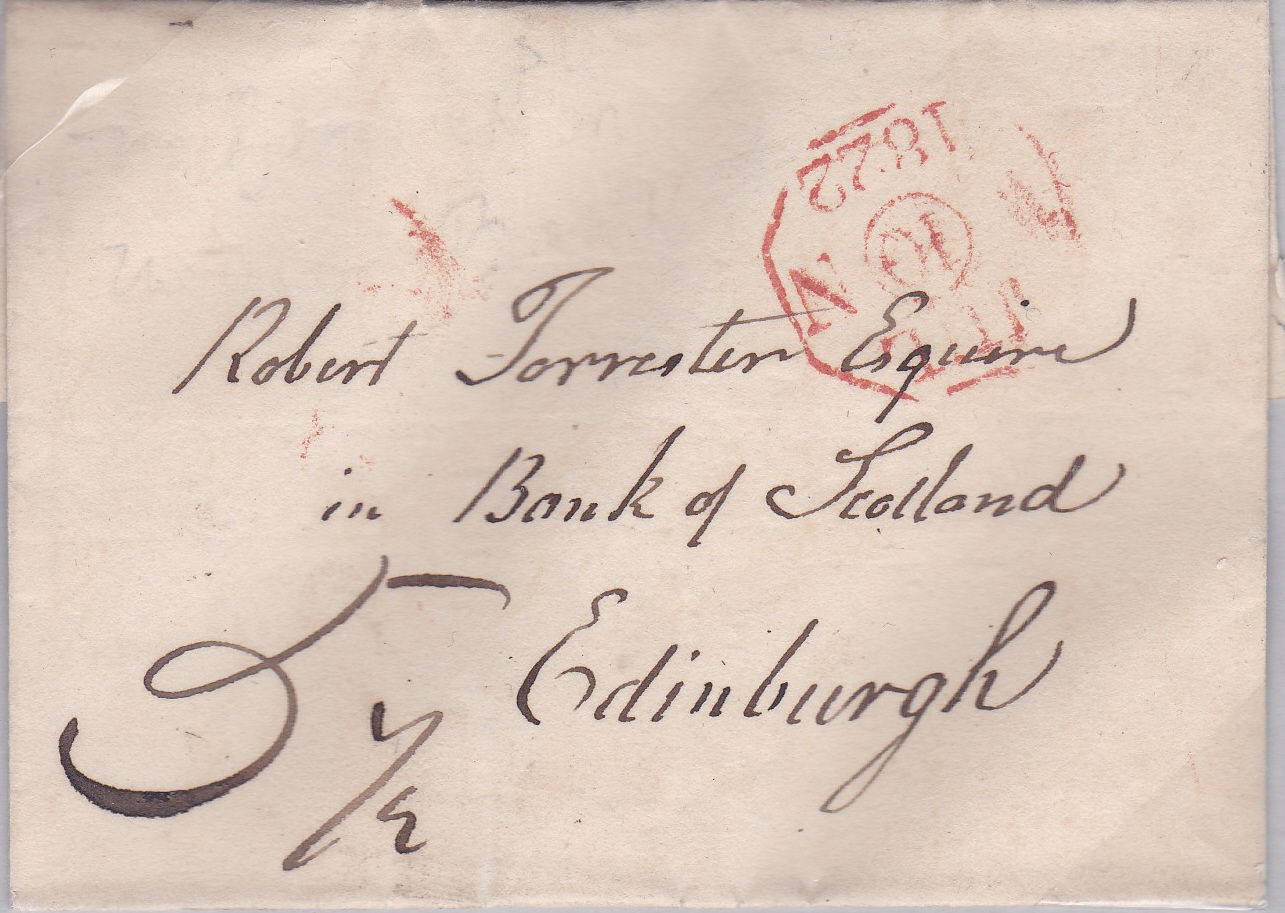 1822
10
Robert Forrester Esquire
in Bank of Scotland
Edinburgh
5 1/2